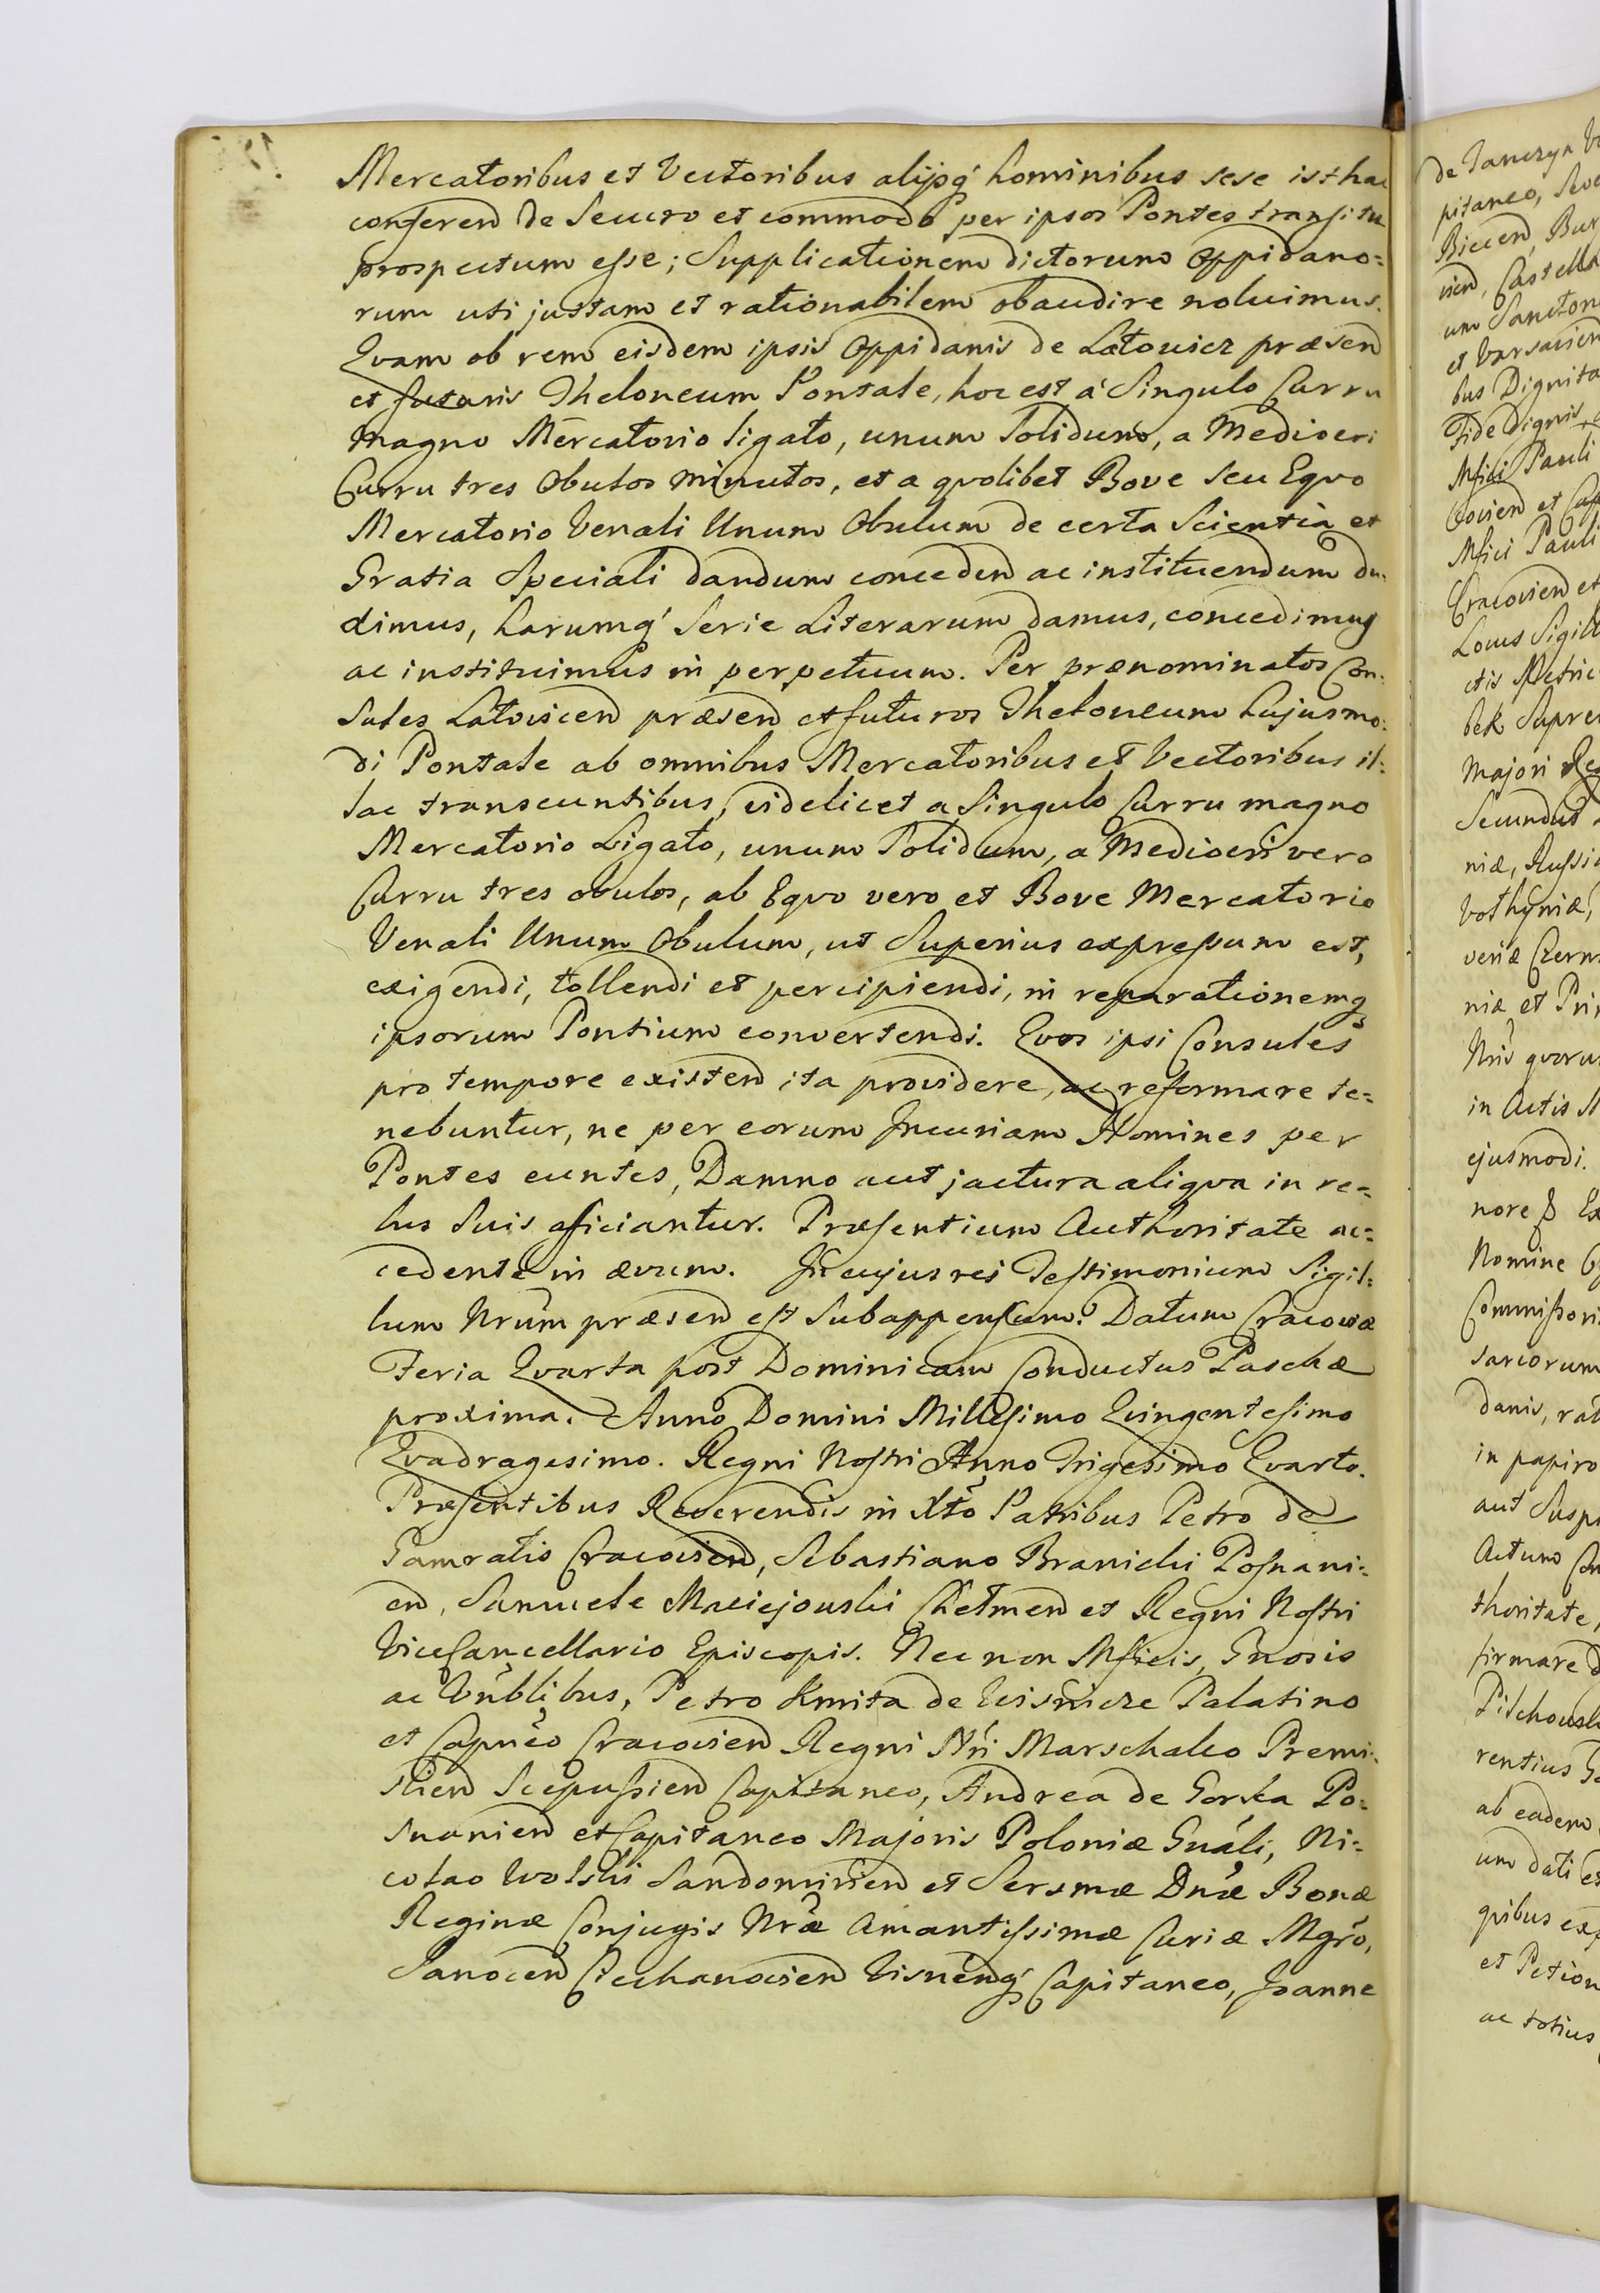 Mercatoribus et Vectoribus alijsq́ hominibus sese isthac
conferen de Securo et commodo per ipsos Pontes transitu
prospectum esse; Supplicationem dictorum Oppidano=
rum uti justam et rationabilem obaudire noluimus.
Qvam ob rem eisdem ipsis Oppidanis de Latowicz præsen
et futuris Theloneum Pontale, hoc est á Singulo Curru
Magno Mercatorio ligato, unum Solidum, a Mediocri
Curru tres Obulos Minutos, et a qvolibet Bove seu Eqvo
Mercatorio Venali Unum Obulum de certa Scientia et
Gratia Speciali dandum conceden ac instituendum du=
ximus, harumq́ Serie Literarum damus, concedimus
ac instituimus in perpetuum. Per prænominatos Con=
sules Latovicen præsen et futuros Theloneum hujusmo=
di Pontale ab omnibus Mercatoribus et Vectoribus il=
lac transeuntibus, videlicet a Singulo Curru magno
Mercatorio Ligato, unum Solidum, a Mediocri vero
Curru tres obulos, ab Eqvo vero et Bove Mercatorio
Venali Unum Obulum, ut Superius expressum est,
exigendi, tollendi et percipiendi, in reparationemq
ipsorum Pontium convertendi. Qvos ipsi Consules
pro tempore existen ita providere, ac reformare te=
nebuntur, ne per eorum Incuriam Homines per
Pontes euntes, Damno aut jactura aliqva in re=
bus Suis afficiantur. Præsentium Authoritate ac=
cedente in ævum. In cujus rei Testimonium Sigil=
lum Nrum præsen est Subappensum. Datum Cracoviæ
Feria Qvarta post Dominicam Conductus Paschæ
proxima. Anno Domini Millesimo Qvingentesimo
Qvadragesimo. Regni Nostri Anno Trigesimo Qvarto.
Præsentibus Reverendis in Xto Patribus Petro de
Gamratis Cracovien, Sebastiano Branicki Posnani=
en, Samuele Maciejouski Chelmen et Regni Nostri
ViceCancellario Episcopis. Nec non Mficis, Gnosis
ac Vnblibus, Petro Kmita de Wisnicze Palatino
et Capneo Cracovien Regni Nri Marschalco Premi=
slien Scepussien Capitaneo, Andrea de Gorka Po=
snanien et Capitaneo Majoris Poloniæ Gnáli, Ni=
colao Wolski Sandomirien et Sersmæ Dnæ Bonæ
Reginæ Conjugis Nræ Amantissimæ Curiæ Mgro,
Sanocen Ciechanovien Visnenq́ Capitaneo, Joanne
de Tanczyn
pitaneo,
Biecen, Bur
vien, Castella
um Sanctor
et Varsavien
bus Dignita
Fide dignis
Mfici Pauli
covien et Cap
Mfici Pauli
Cracovien et
Locus Sigill
ctis Metric
bek Supre
Majori Reg
Secundus
niæ, Russi
Volhyniæ,
veriæ Czern
niæ et Pri
Nris qvoru
in Actis M
ejusmodi.
nore
Nomine
Commissori
sariorum
danis, rat
in papiro
aut Susp
Actum
thoritate,
firmare
Pilchouski
rentius
ab eadem
um dati es
qvibus
et Petion
ac totius